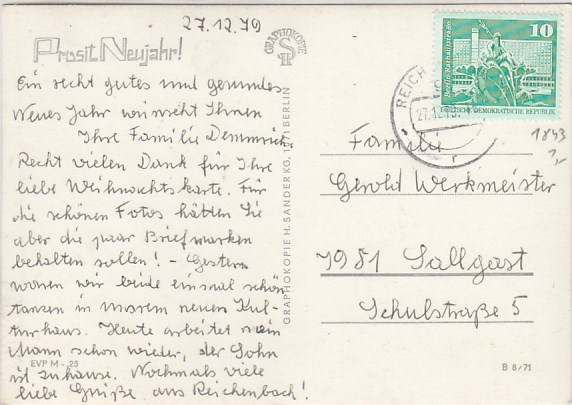 27.12.79
Prosit Neujahr!
Ein recht gutes und gesundes
Neues Jahr wünscht Ihnen
Ihre Familie Demmrich
Recht vielen Dank für Ihre
liebe Weihnachtskarte. Für
die schönen Fotos hätten Sie
aber die paar Briefmarken
behalten sollen! – Gestern
waren wir beide einmal schön
tanzen in unserem neuen Kul-
turhaus. Heute arbeitet mein
Mann schon wieder, der Sohn
ist zuhause. Nochmals viele
liebe Grüße aus Reichenbach!
EVP M –.25
GRAPHOKOPIE
GRAPHOKOPIE H. SANDER KG, 1071 BERLIN
10
DEUTSCHE DEMOKRATISCHE REPUBLIK
REICH
27.12.79
1843
1,-
Familie
Gerold Werkmeister
7981 Sallgast
Schulstraße 5
B 8/71